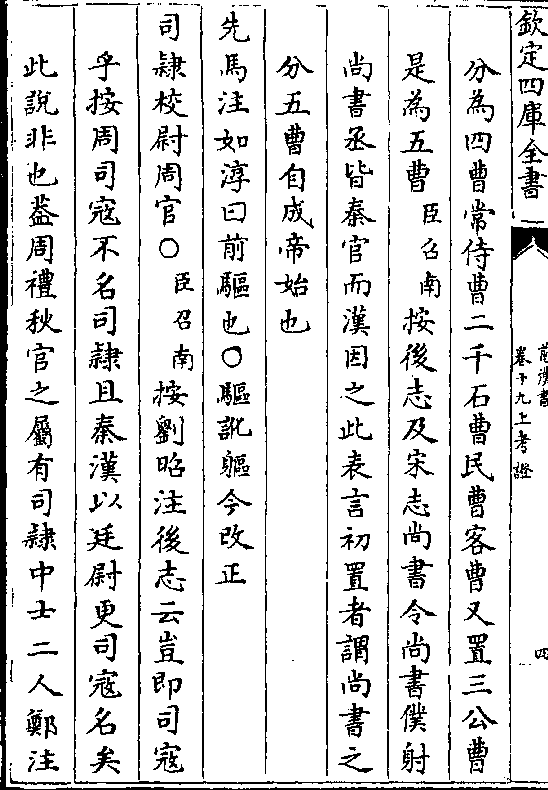 欽定四庫全書
前漢書
卷十九上考證
四
分為四曹常侍曹二千石曹民曹客曹又置三公曹
是為五曹臣召南按後志及宋志尚書令尚書僕射
尚書丞皆秦官而漢因之此表言初置者謂尚書之
分五曹自成帝始也
先馬注如淳曰前驅也〇驅訛軀今改正
司隸校尉周官〇臣召南按劉昭注後志云豈即司寇
乎按周司寇不名司隸且秦漢以廷尉更司寇名矣
此說非也葢周禮秋官之屬有司隸中士二人鄭注